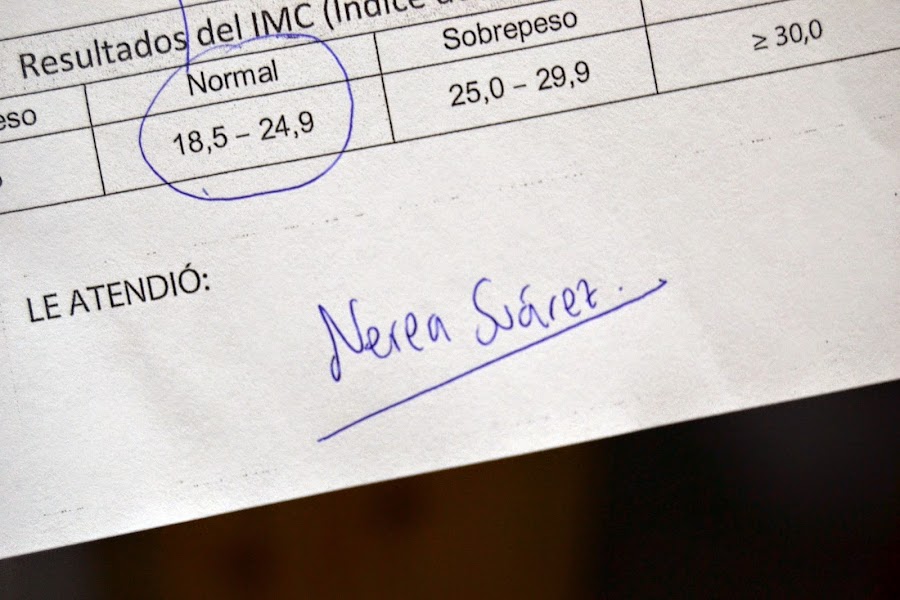 Resultados del IMC (Índice
eso Normal Sobrepeso
18,5 – 24,9 25,0 – 29,9 ≥ 30,0
LE ATENDIÓ:
Nerea Suárez.